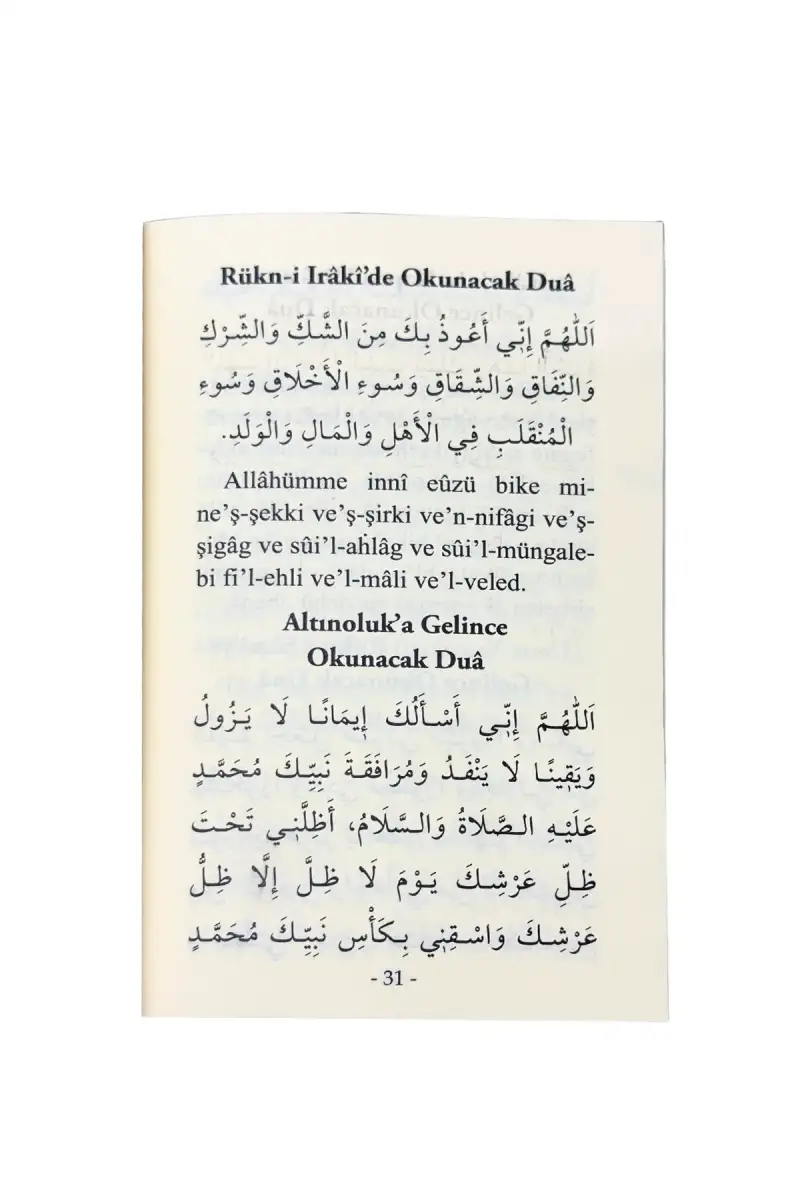 Rükn-i Irâkî’de Okunacak Duâ
اَللّٰهُمَّ إِنِّي أَعُوذُ بِكَ مِنَ الشَّكِّ وَالشِّرْكِ
وَالنِّفَاقِ وَالشِّقَاقِ وَسُوءِ الْأَخْلَاقِ وَسُوءِ
الْمُنْقَلَبِ فِي الْأَهْلِ وَالْمَالِ وَالْوَلَدِ.
Allâhümme innî eûzü bike mi-
ne’ş-şekki ve’ş-şirki ve’n-nifâgi ve’ş-
şigâg ve sûi’l-ahlâg ve sûi’l-müngale-
bi fi’l-ehli ve’l-mâli ve’l-veled.
Altınoluk’a Gelince
Okunacak Duâ
اَللّٰهُمَّ إِنِّي أَسْأَلُكَ إِيمَانًا لَا يَزُولُ
وَيَقِينًا لَا يَنْفَدُ وَمُرَافَقَةَ نَبِيِّكَ مُحَمَّدٍ
عَلَيْهِ الصَّلَاةُ وَالسَّلَامُ، أَظِلَّنِي تَحْتَ
ظِلِّ عَرْشِكَ يَوْمَ لَا ظِلَّ إِلَّا ظِلُّ
عَرْشِكَ وَاسْقِنِي بِكَأْسِ نَبِيِّكَ مُحَمَّدٍ
- 31 -